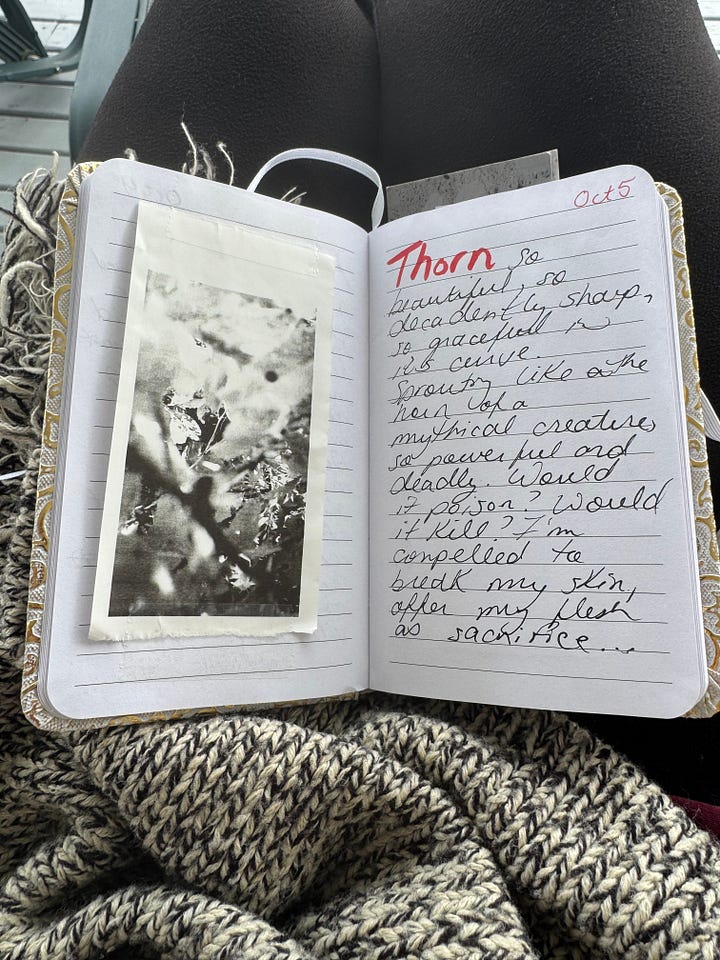 Oct 5
Thorn so
beautiful, so
decadently sharp,
so graceful in
its curve.
Sprouting like the
horn of a
mythical creature,
so powerful and
deadly. Would
it poison? Would
it kill? I'm
compelled to
break my skin,
offer my flesh
as sacrifice...